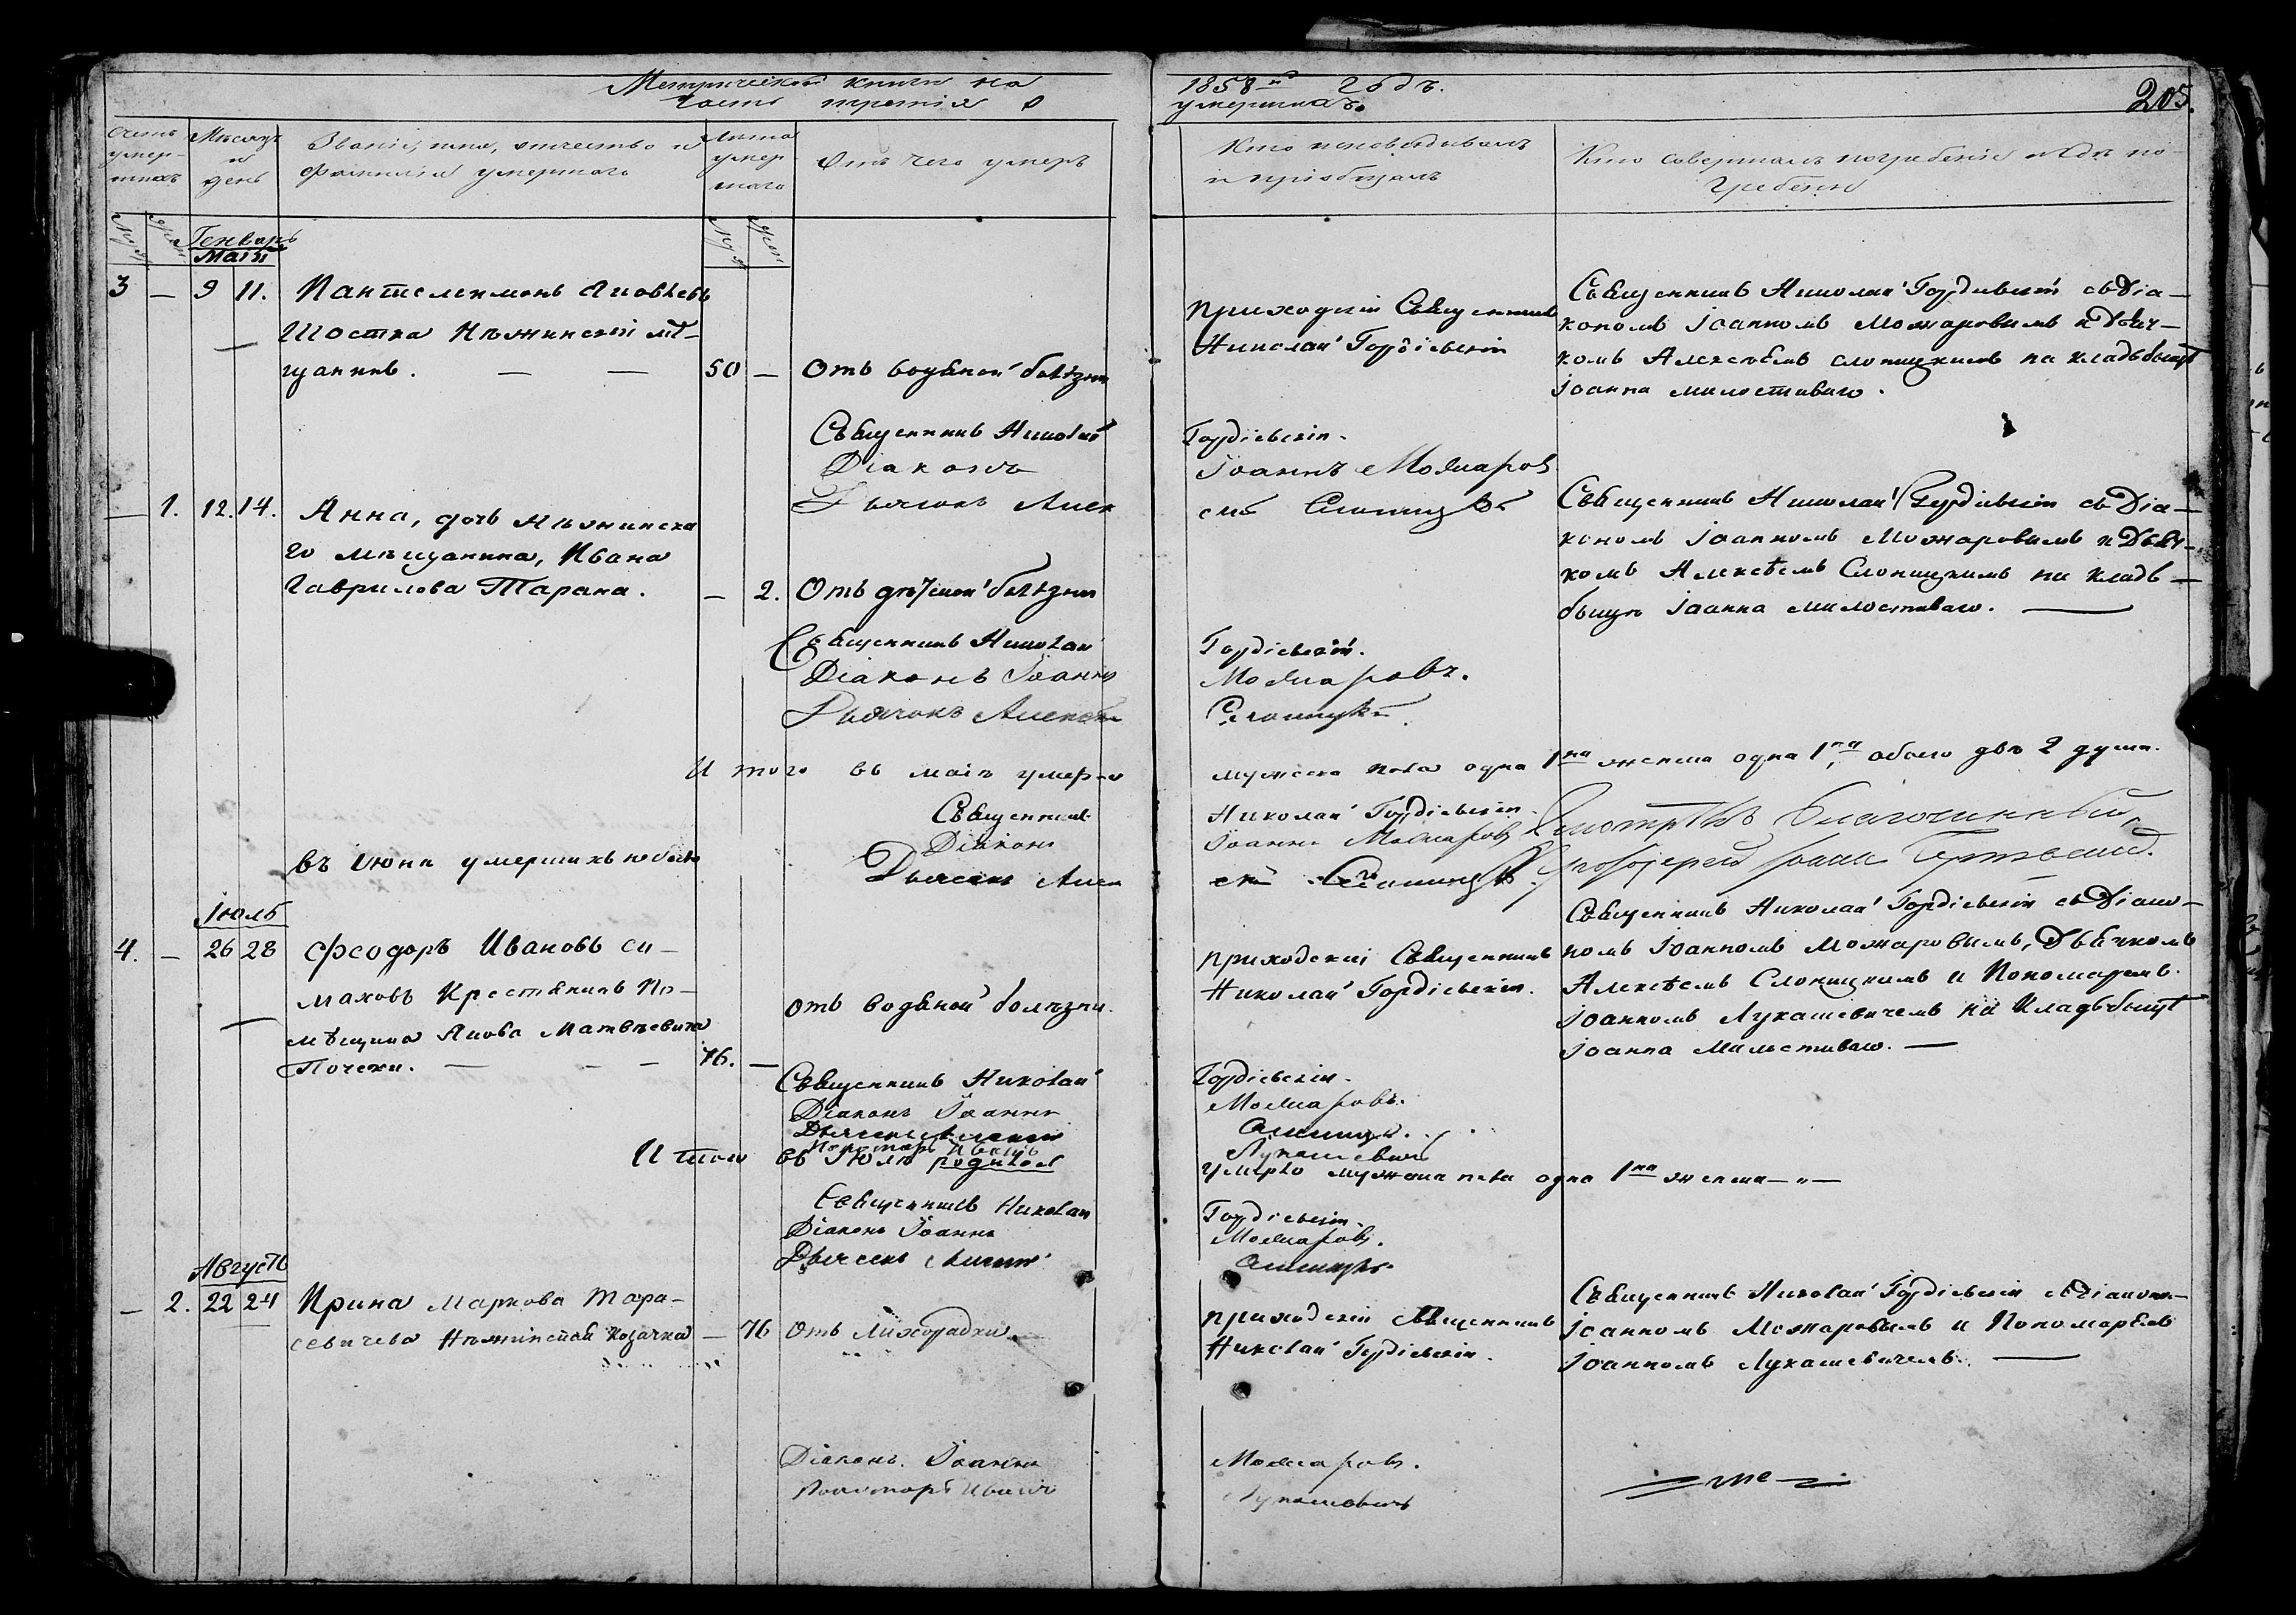 Метрической книги на 1858й годъ. 205.
часть третія о умершихъ.
Счетъ умершихъ
Мѣсяцъ и день
Званіе, имя, отчество и фамилія умершаго
Лѣта умершаго
Отъ чего умеръ
Кто исповѣдывалъ и пріобщалъ
Кто совершалъ погребеніе и гдѣ погребены
Генварь
Маій
3 — 9 11. Пантелеимонъ Яковлевъ
Шостка Нѣжинскій мѣ-
щанинъ. — — 50 — Отъ водяной болѣзни
приходскій Священникъ
Николай Гордіевскій
Священникъ Николай Гордіевскій съ Діа-
кономъ Іоанномъ Можаровымъ и Дьяч-
комъ Алексѣемъ Слоницкимъ на кладьбыщѣ
Іоанна милостиваго.
Священникъ Николай Гордіевскій.
Діаконъ ІоаннъМожаровъ
Дьячокъ Алексѣй Слоницкій
— 1. 12. 14. Анна, дочь Нѣжинска
го мѣщанина, Ивана
Гаврилова Тарана. — 2. Отъ дѣтской болѣзни
Священникъ Николай Гордіевскій съ Діа-
кономъ Іоанномъ Можаровымъ и Дьяч-
комъ Алексѣемъ Слоницкимъ на кладь-
быщѣ Іоанна милостиваго. —
Священникъ Николай Гордіевскій.
Діаконъ Іоаннъ Можаровъ.
Дьячокъ Алексѣй Слоницкій
Итого въ маіѣ умерло мужеска пола одна 1на женска одна 1на, обоего двѣ 2 души.
Священникъ Николай Гордіевскій.
Діаконъ Іоаннъ Можаровъ
Дьячокъ Алексѣй Слоницкій.
Смотрѣлъ Благочинный,
Протоіерей Іоаннъ
въ Іюнѣ умершихъ не было
Іюль
4. — 26 28 Феодоръ Ивановъ си-
маховъ Крестянинъ По-
мѣщика Якова Матвѣевича
Почеки. — — — 76. —
отъ водяной болѣзни.
приходскій Священникъ
Николай Гордіевскій.
Священникъ Николай Гордіевскій съ Діако-
номъ Іоанномъ Можаровымъ, Дьячкомъ
Алексѣемъ Слоницкимъ и Пономаремъ
Іоанномъ Лукашевичемъ на Кладьбыщѣ
Іоанна Милостиваго. —
Священникъ Николай Гордіевскій.
Діаконъ Іоаннъ Можаровъ.
Дьячокъ Алексѣй Слоницкій.
Пономарь Иванъ Лукашевичъ
Итого въ Іюлѣ родилось умерло мужеска пола одна 1на женска — " —
Священникъ Николай Гордіевскій.
Діаконъ Іоаннъ Можаровъ.
Дьячокъ Алексѣй Слоницкій.
Августъ
— 2. 22 24 Ирина Маркова Тара-
севичева Нѣжинская козачка — 76 Отъ Лихорадки.
приходскій Священникъ
Николай Гордіевскій.
Священникъ Николай Гордіевскій съ Діакономъ
Іоанномъ Можаровымъ и Пономарёмъ
Іоанномъ Лукашевичемъ. —
Діаконъ. Іоаннъ Можаровъ.
Пономарь Иванъ Лукашевичъ